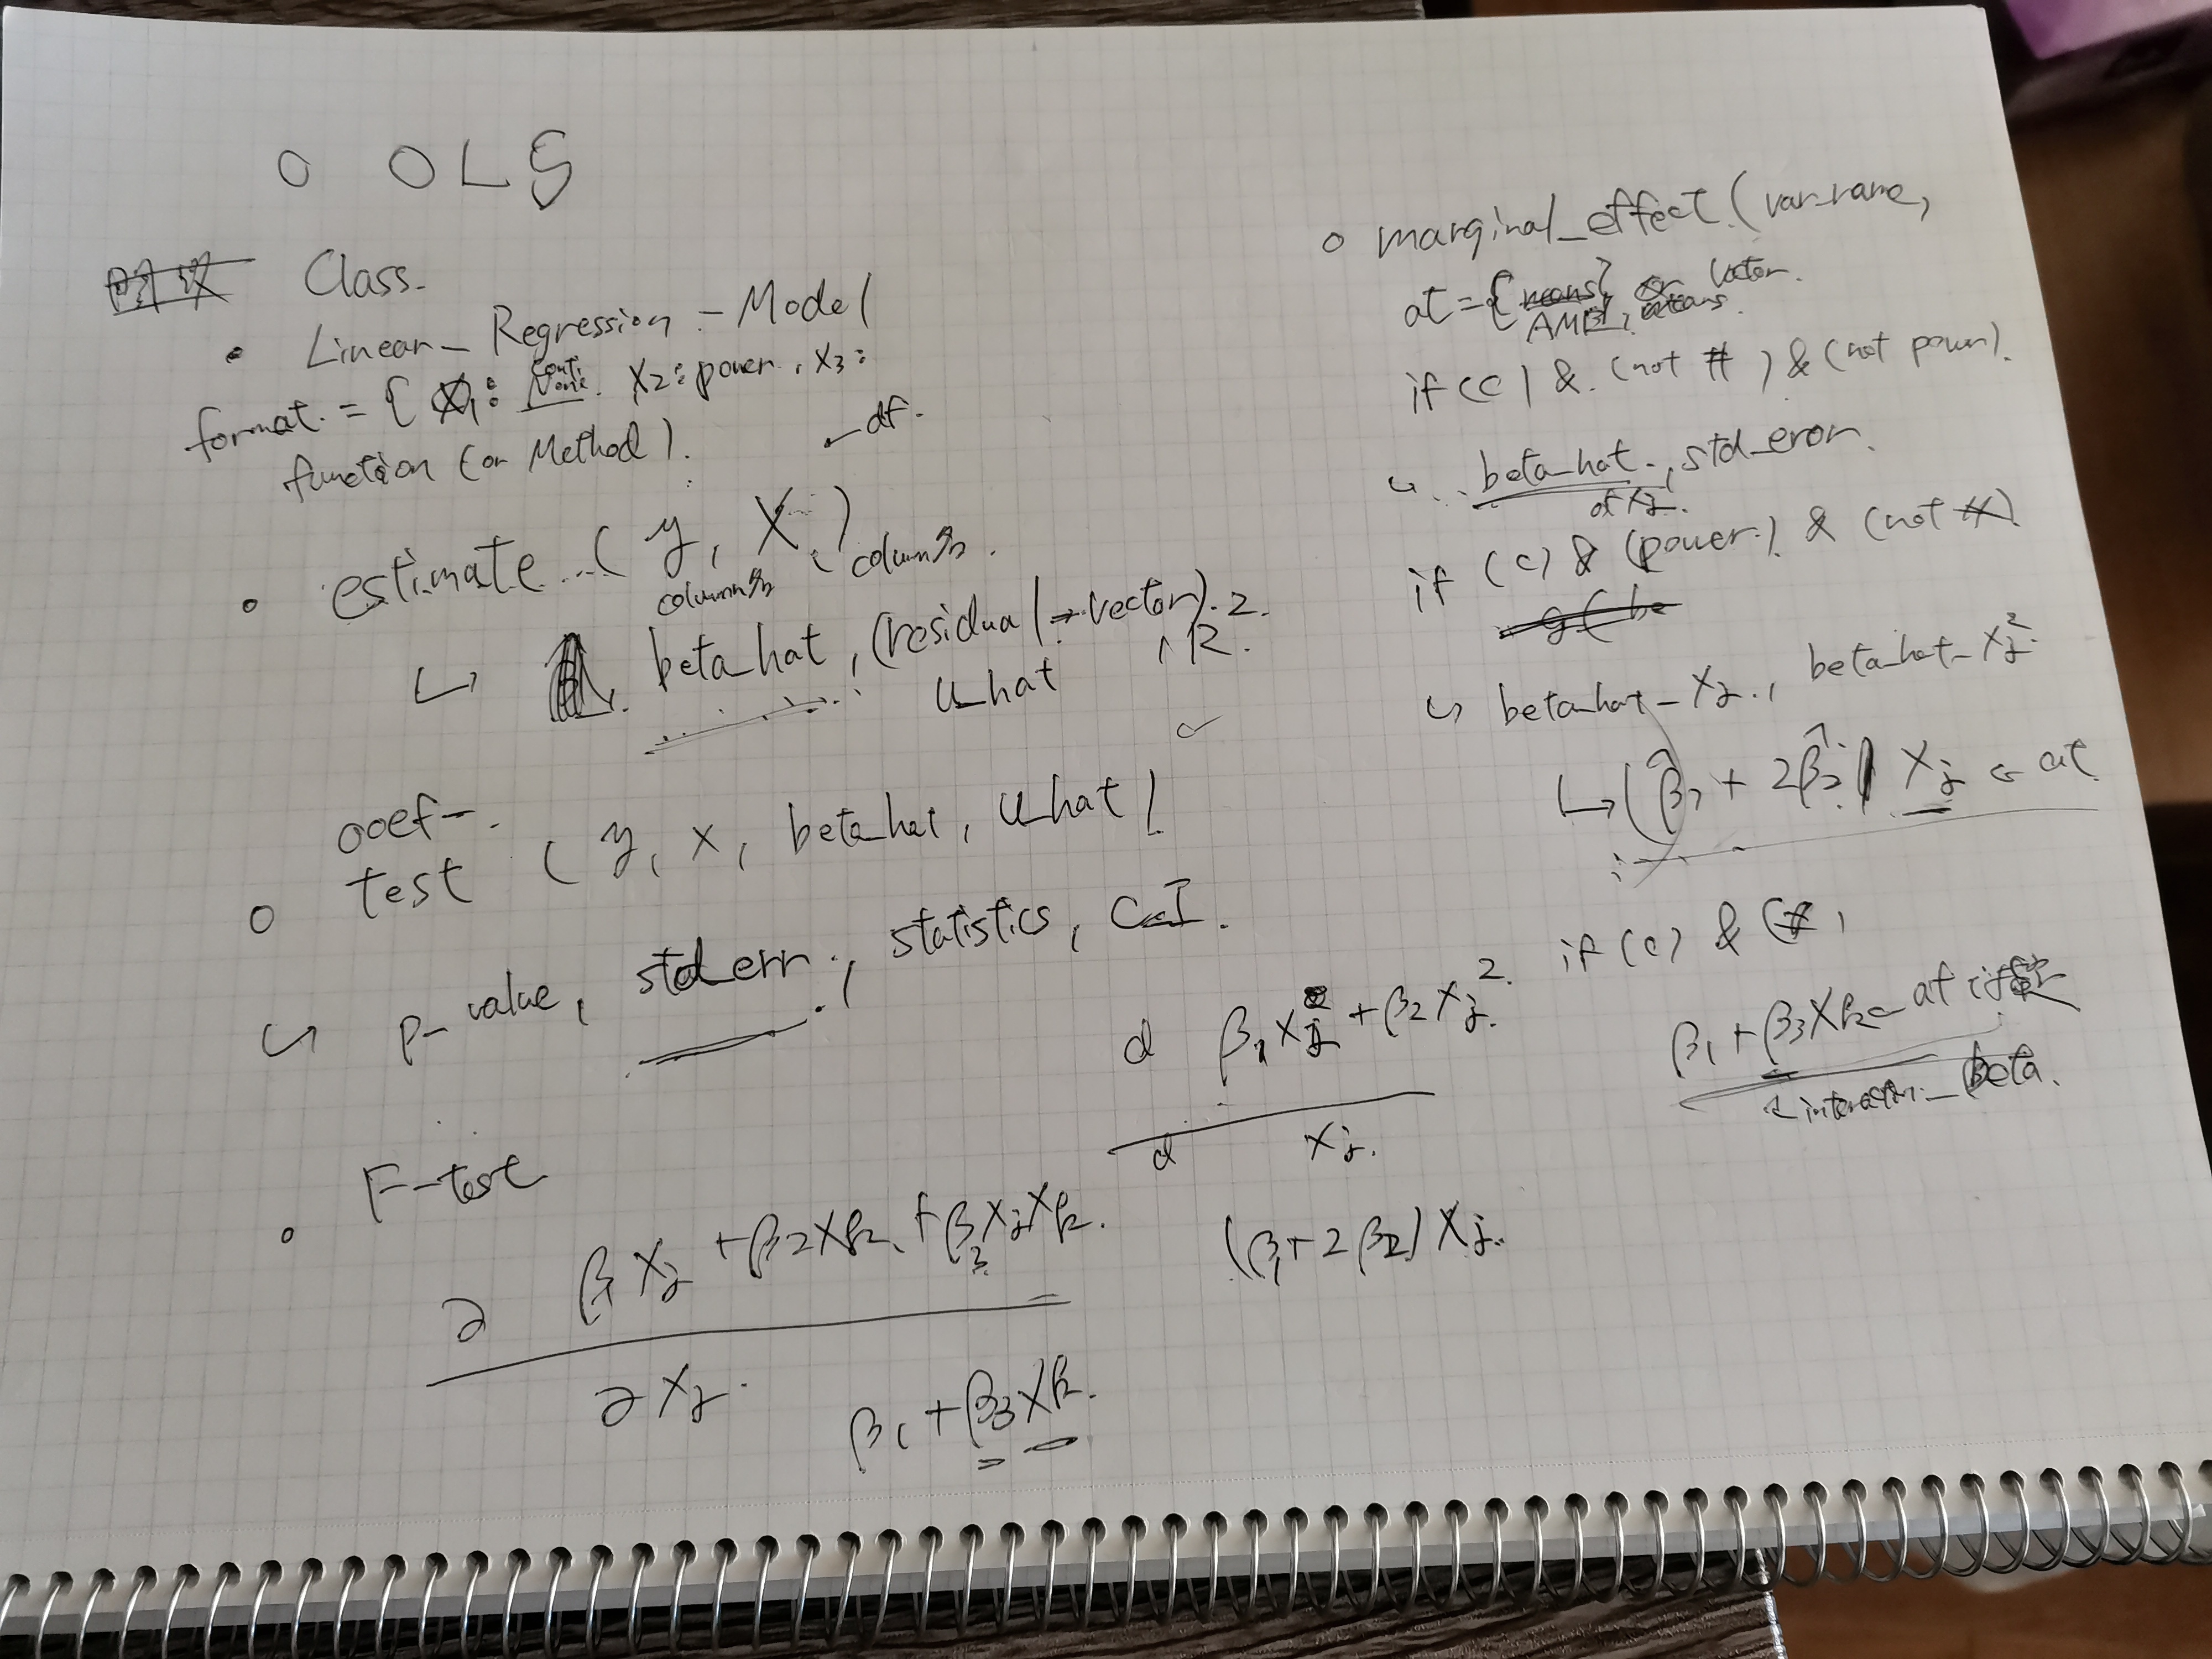 ○ OLS
Class.
• Linear_Regression_Model
format. = { X1: Conti None. X2: power, X3:
function (or Method).
← df.
• estimate (y, X,)
columns columns.
↳ beta_hat, (residual → vector). R2.
u_hat
coef-
○ test (y, x, beta_hat, u_hat)
↳ p-value, std_err., statistics, C.I.
• F-test
∂ β1 Xj + β2 Xk + β3 Xj Xk.
∂ Xj.
β1 + β3 Xk.
d β1 Xj + β2 Xj 2.
d Xj.
(β1 + 2 β2) Xj.
○ marginal_effect (var_name,
at = { means} or vector.
AME, means.
if (c) & (not #) & (not power).
↳ beta_hat, std_eror.
of Xj.
if (c) & (power) & (not #)
g (be
↳ beta_hat_Xj., beta_hat_Xj2.
↳ (β̂1 + 2β̂2) Xj ← at
if (c) & (#)
β1 + β3 Xk ← at
beta.